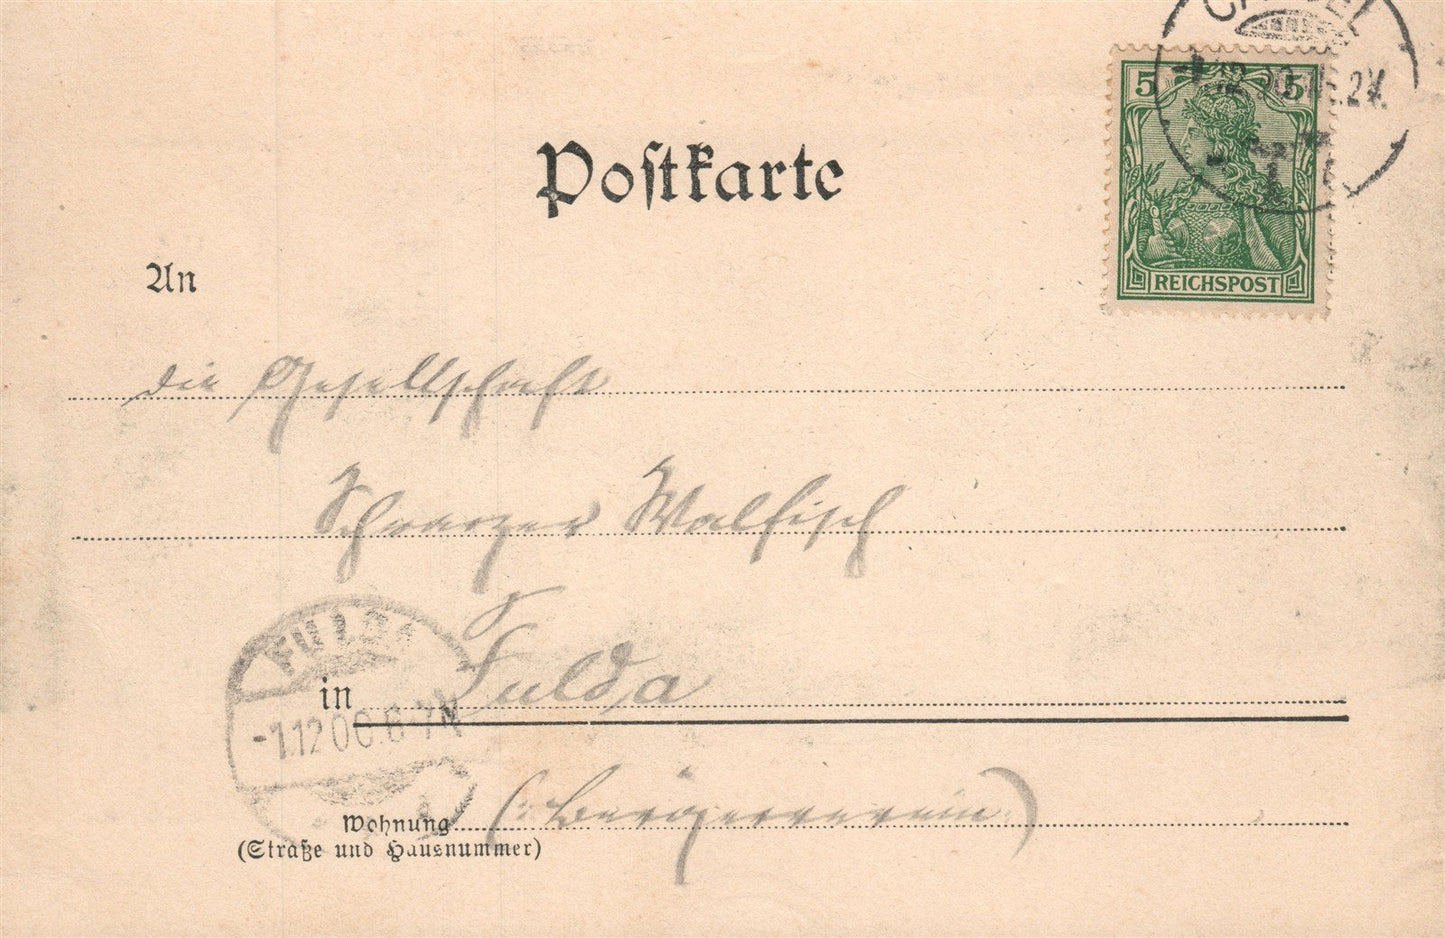 CASSEL
5 5
Postkarte
REICHSPOST
An
die Gesellschaft
Schwarzer Walfisch
FULDA
in Fulda
-1.12 00. 6-7N
Wohnung (: Bürgerverein :)
(Straße und Hausnummer)